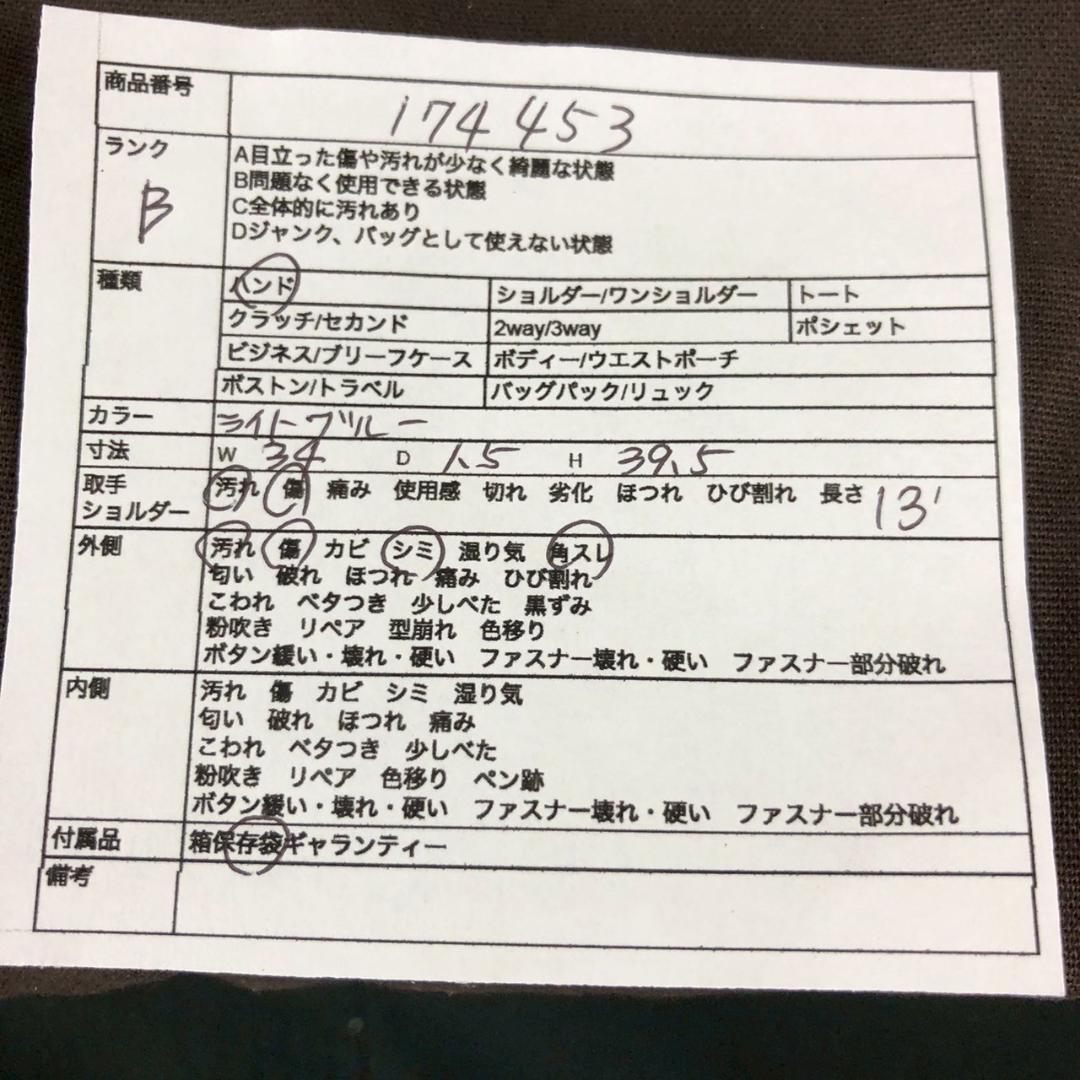 商品番号 174453
ランク B
A目立った傷や汚れが少なく綺麗な状態
B問題なく使用できる状態
C全体的に汚れあり
Dジャンク、バッグとして使えない状態
種類 ハンド ショルダー/ワンショルダー トート
クラッチ/セカンド 2way/3way ポシェット
ビジネス/ブリーフケース ボディー/ウエストポーチ
ボストン/トラベル バッグパック/リュック
カラー ライトブルー
寸法 W 34 D 1.5 H 39.5
取手 汚れ 傷 痛み 使用感 切れ 劣化 ほつれ ひび割れ 長さ 13
ショルダー
外側 汚れ 傷 カビ シミ 湿り気 角スレ
匂い 破れ ほつれ 痛み ひび割れ
こわれ ベタつき 少しべた 黒ずみ
粉吹き リペア 型崩れ 色移り
ボタン緩い・壊れ・硬い ファスナー壊れ・硬い ファスナー部分破れ
内側 汚れ 傷 カビ シミ 湿り気
匂い 破れ ほつれ 痛み
こわれ ベタつき 少しべた
粉吹き リペア 色移り ペン跡
ボタン緩い・壊れ・硬い ファスナー壊れ・硬い ファスナー部分破れ
付属品 箱保存袋ギャランティー
備考